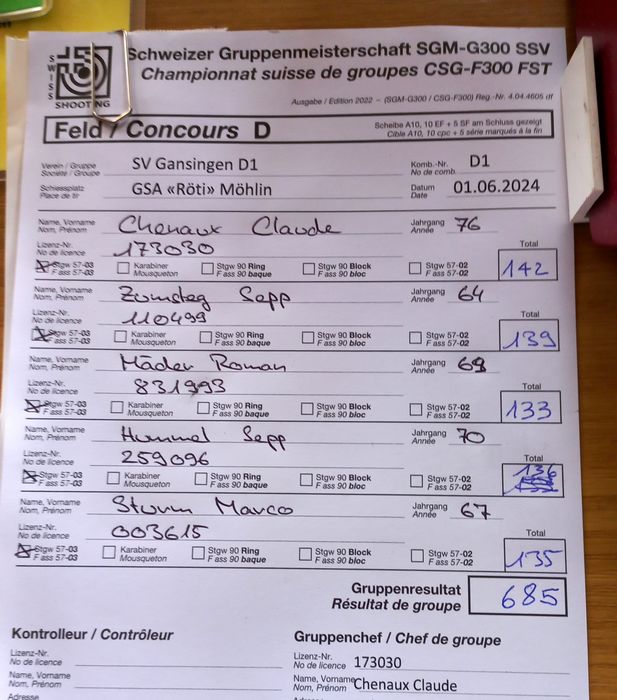 SWISS
SHOOTING
Schweizer Gruppenmeisterschaft SGM-G300 SSV
Championnat suisse de groupes CSG-F300 FST
Ausgabe / Edition 2022 – (SGM-G300 / CSG-F300) Reg.-Nr. 4.04.4605 df
Feld / Concours D
Scheibe A10, 10 EF + 5 SF am Schluss gezeigt
Cible A10, 10 cpc + 5 série marqués à la fin
Verein / Gruppe
Société / Groupe
SV Gansingen D1
Komb.-Nr.
No de comb.
D1
Schiessplatz
Place de tir
GSA «Röti» Möhlin
Datum
Date
01.06.2024
Name, Vorname
Nom, Prénom
Chenaux Claude
Jahrgang
Année
76
Lizenz-Nr.
No de licence
173030
Total
142
Stgw 57-03
F ass 57-03
Karabiner
Mousqueton
Stgw 90 Ring
F ass 90 baque
Stgw 90 Block
F ass 90 bloc
Stgw 57-02
F ass 57-02
Name, Vorname
Nom, Prénom
Zumsteg Sepp
Jahrgang
Année
64
Lizenz-Nr.
No de licence
110499
Total
139
Stgw 57-03
F ass 57-03
Karabiner
Mousqueton
Stgw 90 Ring
F ass 90 baque
Stgw 90 Block
F ass 90 bloc
Stgw 57-02
F ass 57-02
Name, Vorname
Nom, Prénom
Mäder Roman
Jahrgang
Année
69
Lizenz-Nr.
No de licence
831993
Total
133
Stgw 57-03
F ass 57-03
Karabiner
Mousqueton
Stgw 90 Ring
F ass 90 baque
Stgw 90 Block
F ass 90 bloc
Stgw 57-02
F ass 57-02
Name, Vorname
Nom, Prénom
Hummel Sepp
Jahrgang
Année
70
Lizenz-Nr.
No de licence
259096
Total
136
Stgw 57-03
F ass 57-03
Karabiner
Mousqueton
Stgw 90 Ring
F ass 90 baque
Stgw 90 Block
F ass 90 bloc
Stgw 57-02
F ass 57-02
Name, Vorname
Nom, Prénom
Sturm Marco
Jahrgang
Année
67
Lizenz-Nr.
No de licence
003615
Total
135
Stgw 57-03
F ass 57-03
Karabiner
Mousqueton
Stgw 90 Ring
F ass 90 baque
Stgw 90 Block
F ass 90 bloc
Stgw 57-02
F ass 57-02
Gruppenresultat
Résultat de groupe
685
Kontrolleur / Contrôleur
Lizenz-Nr.
No de licence
Name, Vorname
Nom, Prénom
Adresse
Gruppenchef / Chef de groupe
Lizenz-Nr.
No de licence
173030
Name, Vorname
Nom, Prénom
Chenaux Claude
Adresse